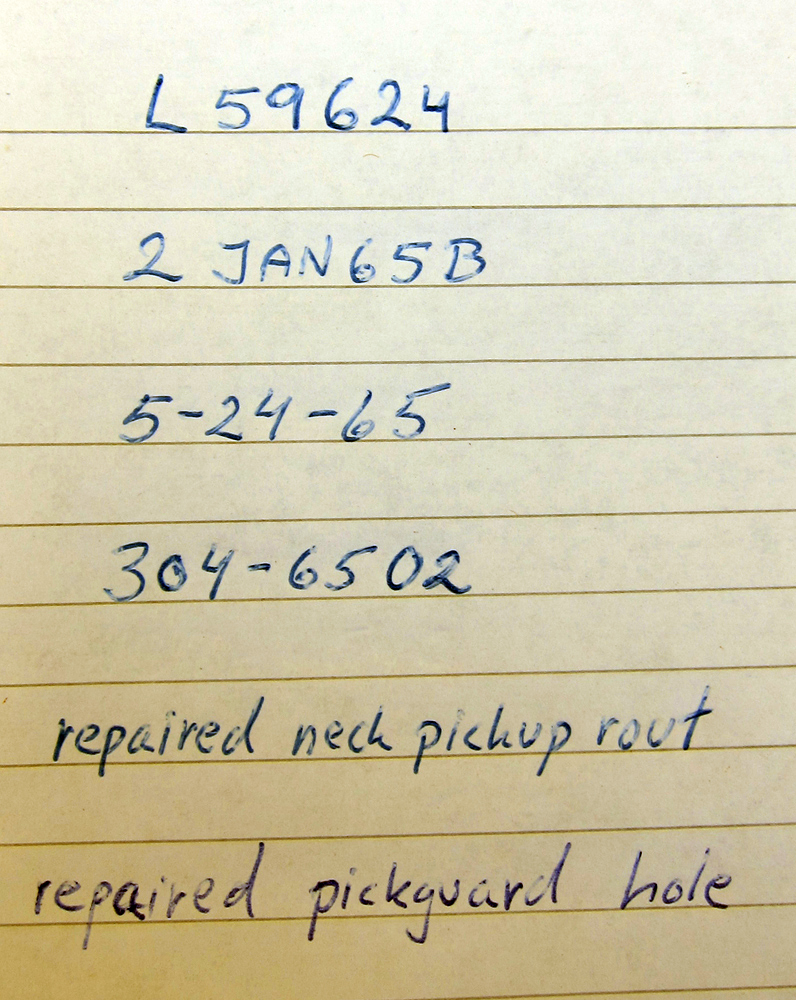 L 59624
2 JAN65B
5-24-65
304-6502
repaired neck pickup rout
repaired pickguard hole